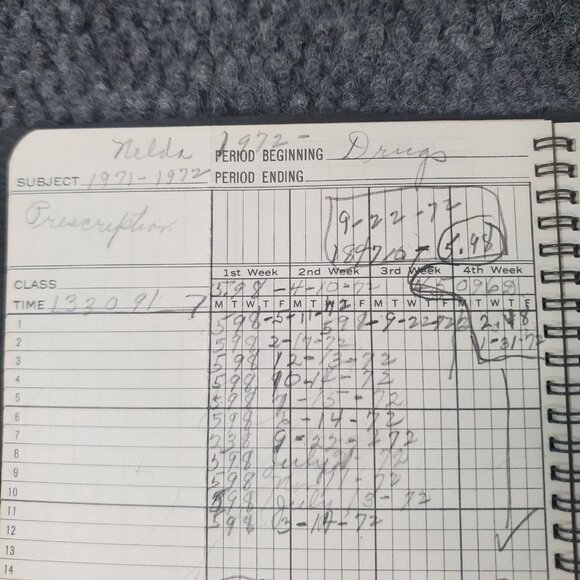 Nelda 1972- PERIOD BEGINNING Drugs
SUBJECT 1971-1972 PERIOD ENDING
Prescription
9-22-72
189710- 5.98
1st Week 2nd Week 3rd Week 4th Week
CLASS 598 -4-10-72 650968
TIME 133091 M T W T F M T W T F M T W T F M T W T F
1 598-5-11-72 598-9-22-72 2.48
2 598 2-17-72 1-31-72
3 598 12-13-72
4 598 10-11-72
5 598 7-15-72
6 598 2-14-72
7 238 9-22-272
8 598 July 72
9 598 11-72
10 598 July 13-72
11 598 3-14-72
12
13
14